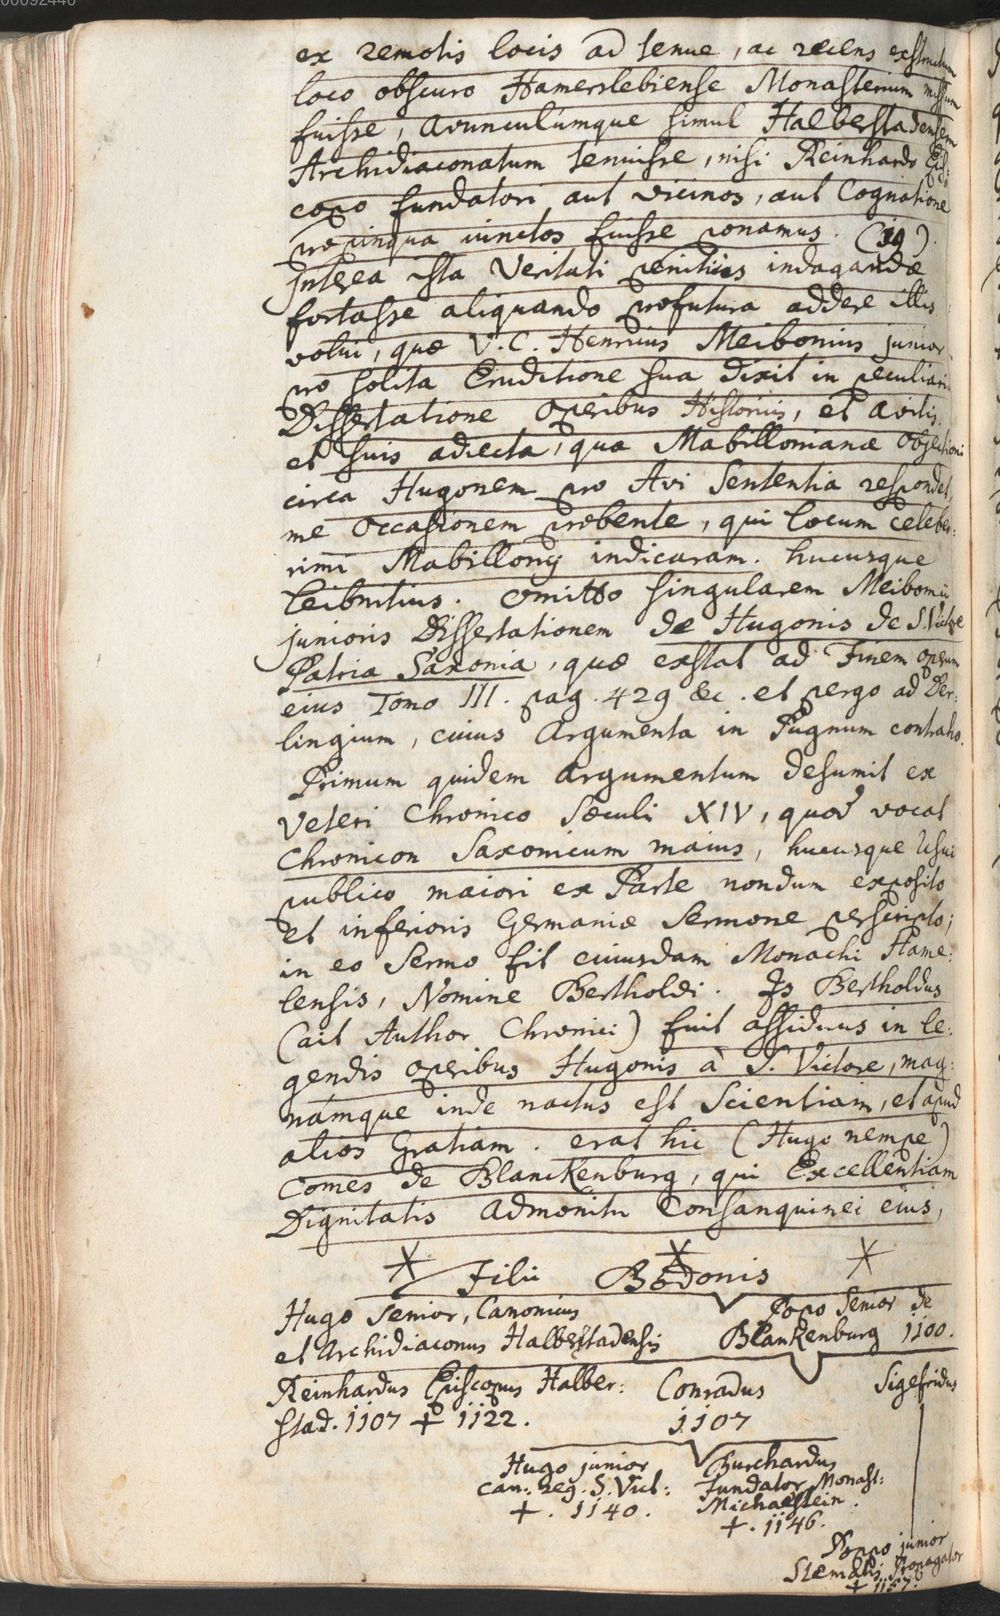 ex remotis locis ad tenue, ac recens exstructum
loco obscuro Hamerslebiense Monasterium missum
fuisse, avunculumque simul Halberstadensem
Archidiaconatum tenuisse, nisi Reinhardo Epis:
copo fundatori aut vicinos, aut Cognatione
propinqua iunctos fuisse ponamus. (19)
Interea ista Veritati penitius indagandæ
fortasse aliquando profutura addere illis
volui, quæ V. C. Henricus Meibomius junior
pro solita Eruditione sua dixit in peculiari
Dissertatione operibus Historicis, et avitis,
et suis adiecta, qua Mabillonianæ Objectioni
circa Hugonem pro Avi Sententia respondet,
me Occasionem præbente, qui locum celeber:
rimi Mabillonij indicaram. hucusque
Leibnitius. Omitto singularem Meibomii
junioris Dissertationem de Hugonis de S. Victore
Patria Saxonia, quæ exstat ad Finem operum
eius Tomo III. pag. 429 &c. et pergo ad Der:
lingium, cuius Argumenta in Pugnum contraho.
Primum quidem argumentum desumit ex
Veteri Chronico Sæculi XIV, quod vocat
Chronicon Saxonicum maius, hucusque Usui
publico maiori ex Parte nondum exposito
et inferioris Germaniæ Sermone perscripto;
in eo Sermo fit cuiusdam Monachi Hame:
lensis, Nomine Bertholdi. Is Bertholdus
(ait Author Chronici) fuit assiduus in le:
gendis operibus Hugonis à S. Victore, mag:
namque inde nactus est Scientiam, et apud
alios Gratiam. erat hic (Hugo nempe)
Comes de Blanckenburg, qui Excellentiam
Dignitatis admonitu Consanguinei eius,
* Filii * Bodonis *
Hugo Senior, Canonicus
et Archidiaconus Halberstadensis
Popo Senior de
Blankenburg 1100.
Reinhardus Episcopus Halber:
stad. 1107 + 1122.
Conradus
1107
Sigefridus
Hugo junior
can: reg. S. Vict:
+. 1140.
Burchardus
Fundator Monast:
Michaelstein.
+. 1146.
Poppo junior
Stematis Propagator